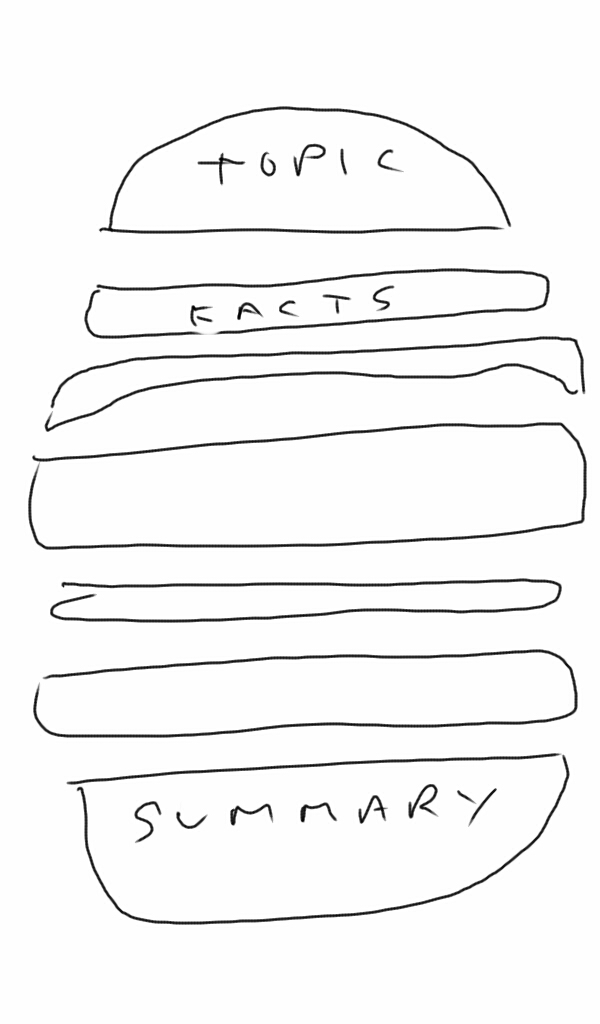 TOPIC
FACTS
SUMMARY